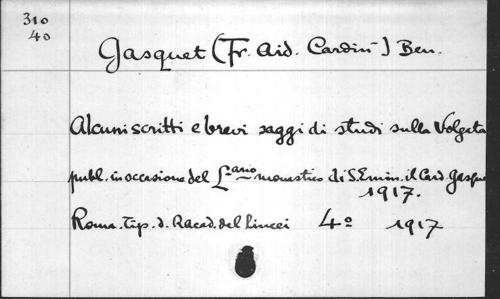 310
40
Gasquet (Fr. Aid. Cardin-) Ben.
Alcuni scritti e brevi saggi di studi sulla Volgata
publ. in occasione del L.ario monastico di S. Emin. il Card. Gasque
1917.
Roma. Tip. d. R. acad. dei Lincei 4º 1917